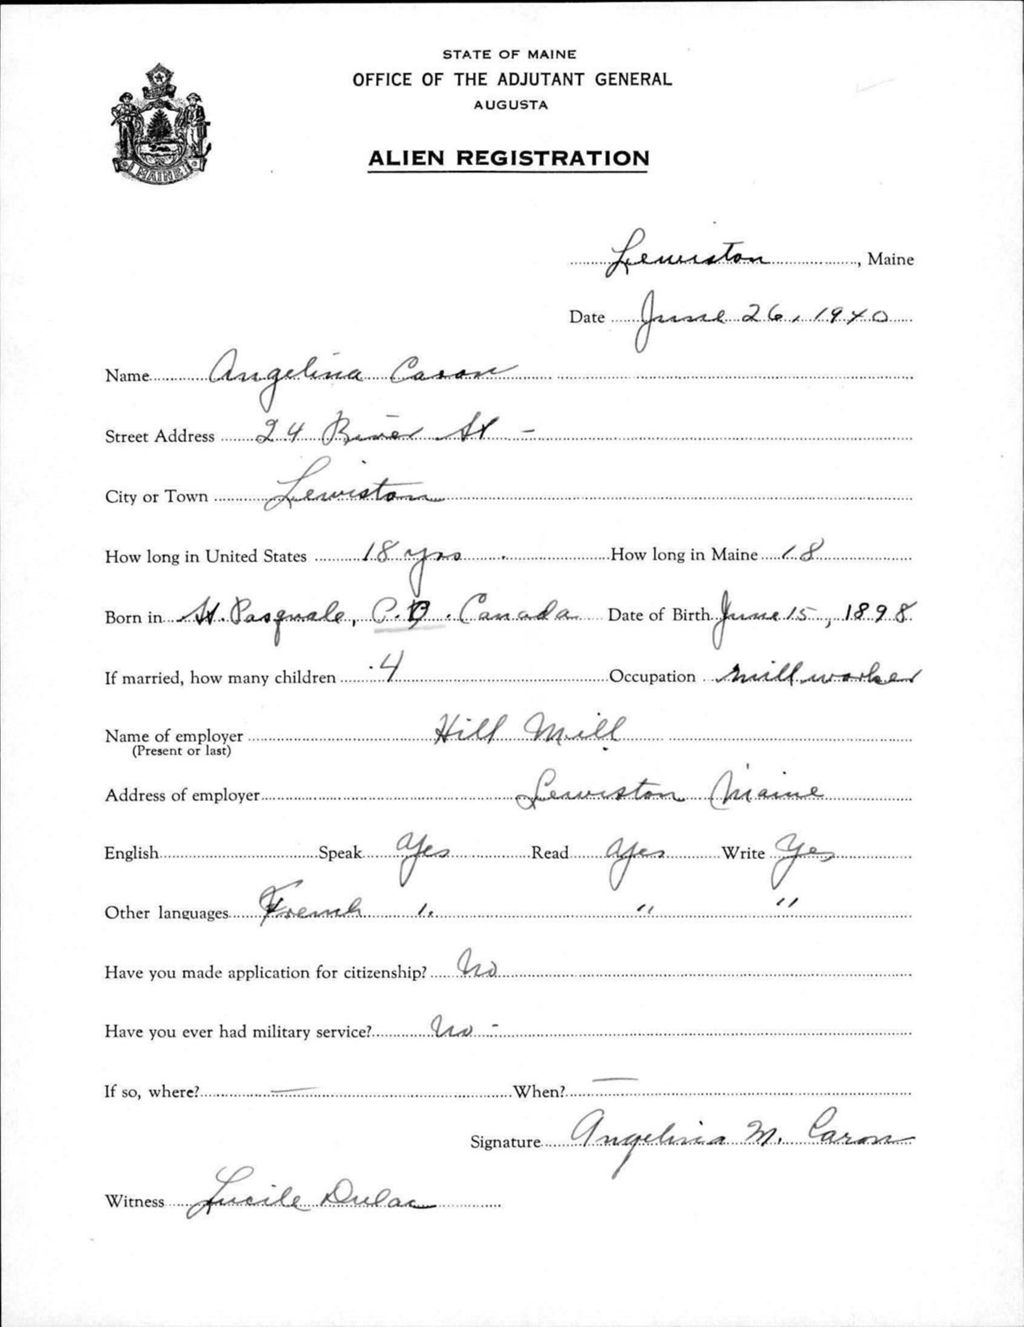 STATE OF MAINE
OFFICE OF THE ADJUTANT GENERAL
AUGUSTA
ALIEN REGISTRATION
MAINE
Lewiston, Maine
Date June 26, 1940
Name Angelina Caron
Street Address 24 River St -
City or Town Lewiston
How long in United States 18 yrs. How long in Maine 18
Born in St. Pasquale, P.Q. Canada Date of Birth June 15, 1898
If married, how many children 4 Occupation mill worker
Name of employer Hill Mill
(Present or last)
Address of employer Lewiston Maine
English Speak Yes Read Yes Write Yes
Other languages French " " "
Have you made application for citizenship? No
Have you ever had military service? No -
If so, where? — When? —
Signature Angelina M. Caron
Witness Lucile Dulac